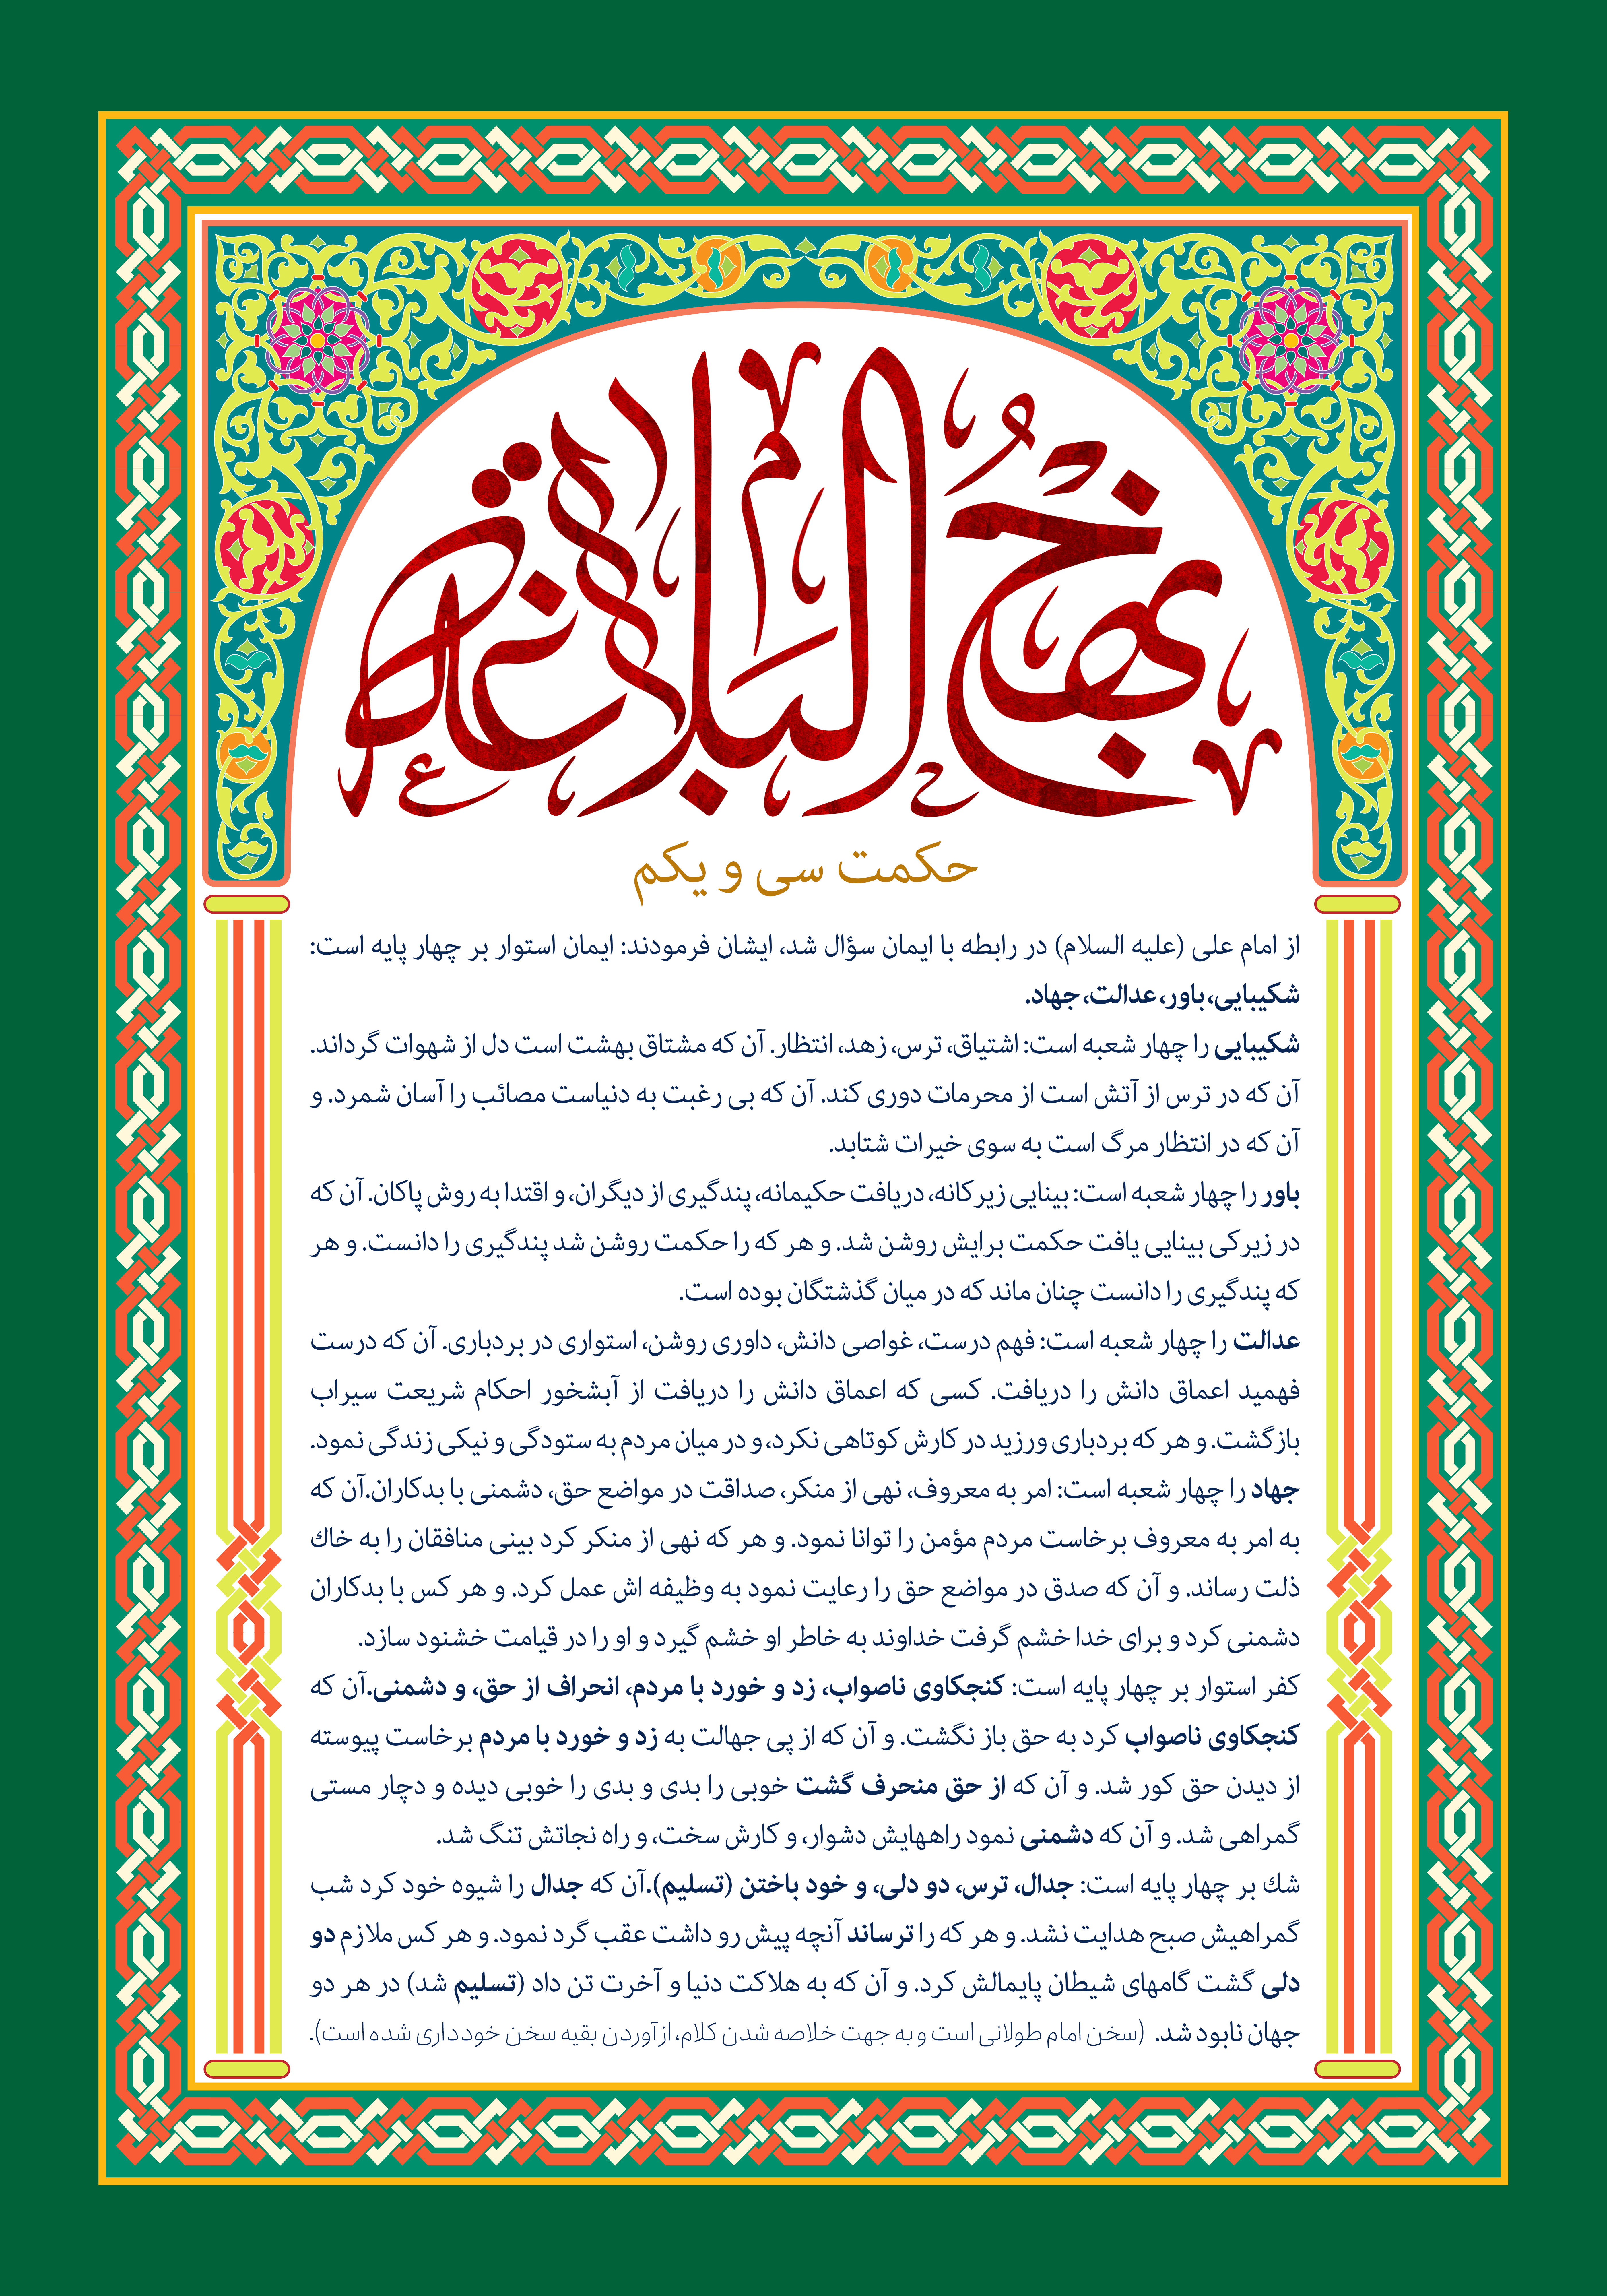 نَهْجُ البَلاغَة
حکمت سی و یکم
از امام علی (علیه السلام) در رابطه با ایمان سؤال شد، ایشان فرمودند: ایمان استوار بر چهار پایه است:
شکیبایی، باور، عدالت، جهاد.
شکیبایی را چهار شعبه است: اشتیاق، ترس، زهد، انتظار. آن که مشتاق بهشت است دل از شهوات گرداند.
آن که در ترس از آتش است از محرمات دوری کند. آن که بی رغبت به دنیاست مصائب را آسان شمرد. و
آن که در انتظار مرگ است به سوی خیرات شتابد.
باور را چهار شعبه است: بینایی زیرکانه، دریافت حکیمانه، پندگیری از دیگران، و اقتدا به روش پاکان. آن که
در زیرکی بینایی یافت حکمت برایش روشن شد. و هر که را حکمت روشن شد پندگیری را دانست. و هر
که پندگیری را دانست چنان ماند که در میان گذشتگان بوده است.
عدالت را چهار شعبه است: فهم درست، غواصی دانش، داوری روشن، استواری در بردباری. آن که درست
فهمید اعماق دانش را دریافت. کسی که اعماق دانش را دریافت از آبشخور احکام شریعت سیراب
بازگشت. و هر که بردباری ورزید در کارش کوتاهی نکرد، و در میان مردم به ستودگی و نیکی زندگی نمود.
جهاد را چهار شعبه است: امر به معروف، نهی از منکر، صداقت در مواضع حق، دشمنی با بدکاران.آن که
به امر به معروف برخاست مردم مؤمن را توانا نمود. و هر که نهی از منکر کرد بینی منافقان را به خاك
ذلت رساند. و آن که صدق در مواضع حق را رعایت نمود به وظیفه اش عمل کرد. و هر کس با بدکاران
دشمنی کرد و برای خدا خشم گرفت خداوند به خاطر او خشم گیرد و او را در قیامت خشنود سازد.
کفر استوار بر چهار پایه است: کنجکاوی ناصواب، زد و خورد با مردم، انحراف از حق، و دشمنی.آن که
کنجکاوی ناصواب کرد به حق باز نگشت. و آن که از پی جهالت به زد و خورد با مردم برخاست پیوسته
از دیدن حق کور شد. و آن که از حق منحرف گشت خوبی را بدی و بدی را خوبی دیده و دچار مستی
گمراهی شد. و آن که دشمنی نمود راههایش دشوار، و کارش سخت، و راه نجاتش تنگ شد.
شك بر چهار پایه است: جدال، ترس، دو دلی، و خود باختن (تسلیم).آن که جدال را شیوه خود کرد شب
گمراهیش صبح هدایت نشد. و هر که را ترساند آنچه پیش رو داشت عقب گرد نمود. و هر کس ملازم دو
دلی گشت گامهای شیطان پایمالش کرد. و آن که به هلاکت دنیا و آخرت تن داد (تسلیم شد) در هر دو
جهان نابود شد. (سخن امام طولانی است و به جهت خلاصه شدن کلام، از آوردن بقیه سخن خودداری شده است).